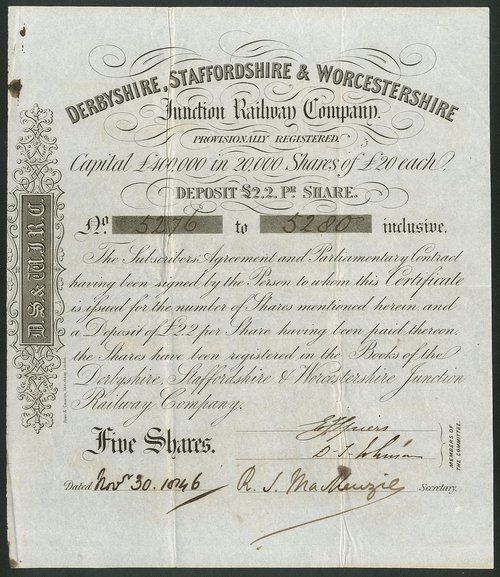 DERBYSHIRE, STAFFORDSHIRE & WORCESTERSHIRE
Junction Railway Company.
PROVISIONALLY REGISTERED.
Capital £400,000 in 20,000 Shares of £20 each.
DEPOSIT £2.2. Pr. SHARE.
No. 5276 to 5280 inclusive.
The Subscribers Agreement and Parliamentary Contract
having been signed by the Person to whom this Certificate
is issued for the number of Shares mentioned herein, and
a Deposit of £2.2 per Share having been paid thereon,
the Shares have been registered in the Books of the
Derbyshire, Staffordshire & Worcestershire Junction
Railway Company.
Five Shares.
MEMBERS OF
THE COMMITTEE.
Dated Novr 30. 1846
R. S. MacKenzie Secretary.
D S & W J R C